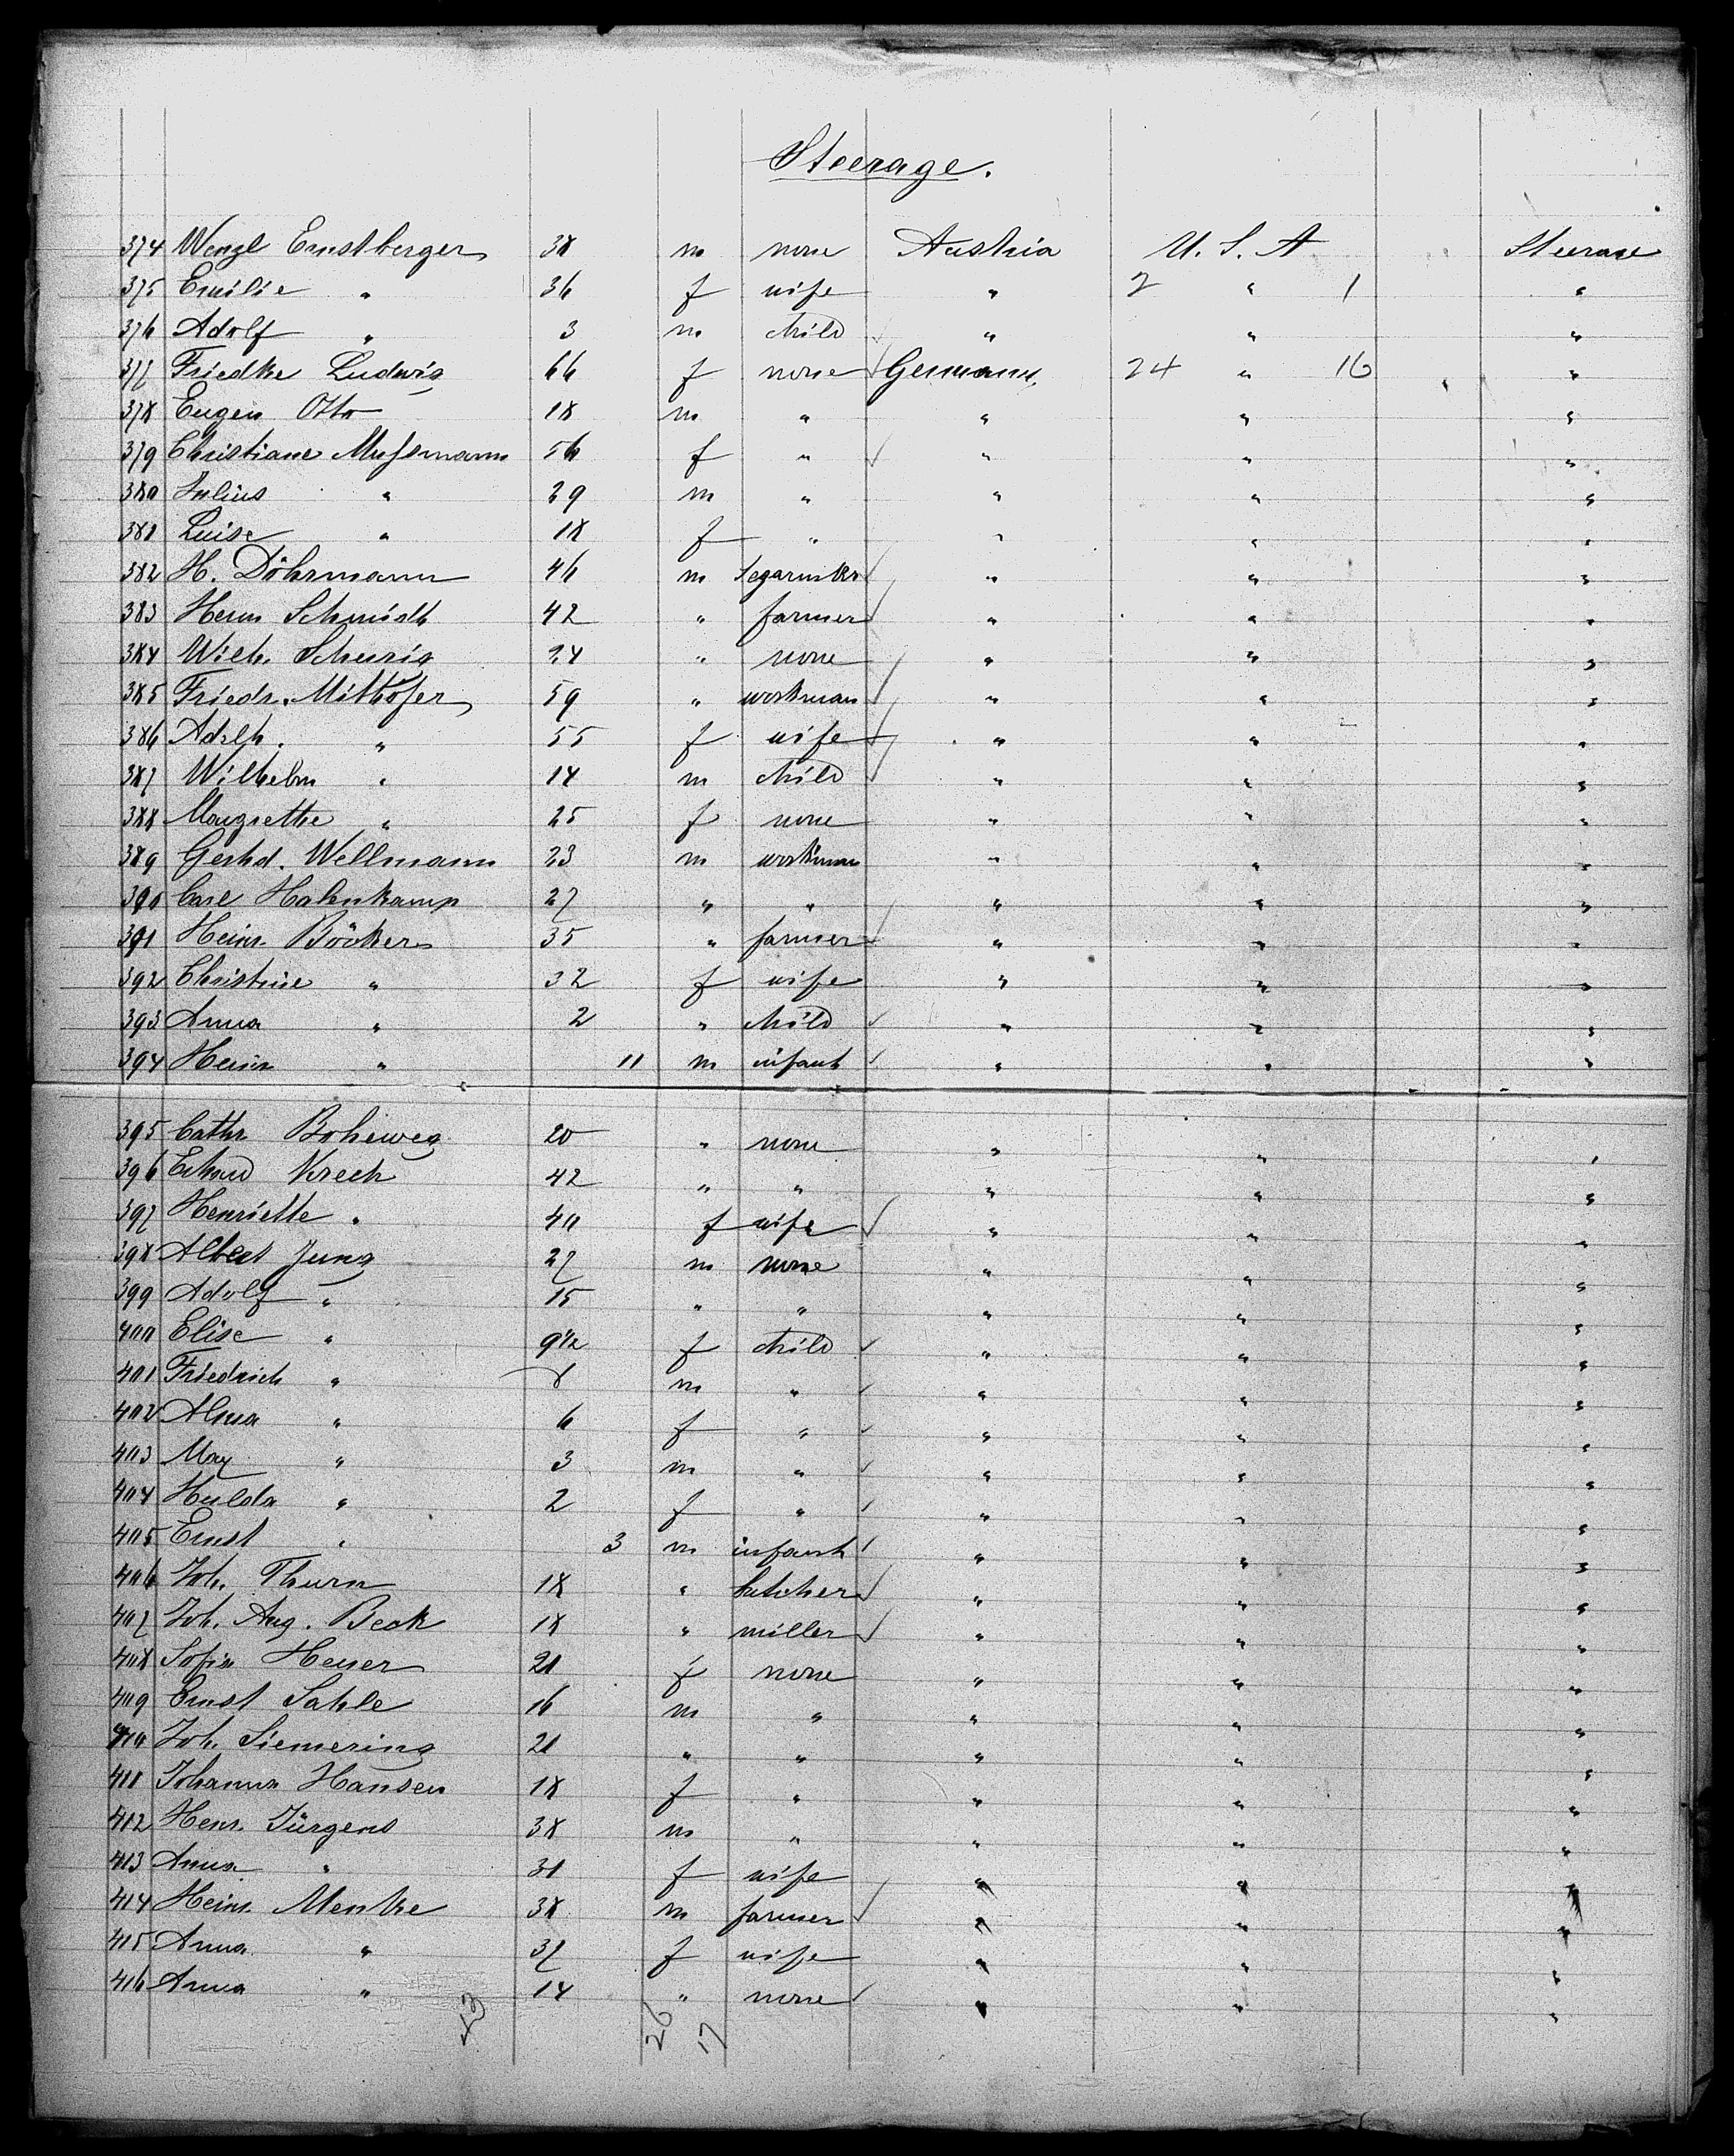 Steerage.
374 Wenzl Ernstberger 38 m none Austria U. S. A Steerage
375 Emilie " 36 f wife " 2 " 1 "
376 Adolf " 3 m child " " "
377 Friedke Ludwig 66 f none Germany 24 " 16 "
378 Eugen Otto 18 m " " " "
379 Christiane Mussmann 56 f " " " "
380 Julius " 29 m " " " "
381 Luise " 18 f " " " "
382 H. Döhrmann 46 m Segarmkr " " "
383 Herm Schmidt 42 " farmer " " "
384 Wilh. Scheurig 24 " none " " "
385 Friedr. Mithöfer 59 " workman " " "
386 Adelh. " 55 f wife " " "
387 Wilhelm " 14 m child " " "
388 Margrethe " 25 f none " " "
389 Gerhd. Wellmann 23 m workman " " "
390 Carl Halenkamp 27 " " " " "
391 Heinr. Böcker 35 " farmer " " "
392 Christine " 32 f wife " " "
393 Anna " 2 " child " " "
394 Heinr " 11 m infant " " "
395 Cathr Boheweg 20 " none " " "
396 Erhard Krech 42 " " " " "
397 Henriette " 40 f wife " " "
398 Albert Jung 27 m none " " "
399 Adolf " 15 " " " " "
400 Elise " 9 1/2 f child " " "
401 Friedrich " 8 m " " " "
402 Alma " 6 f " " " "
403 Max " 3 m " " " "
404 Hulda " 2 f " " " "
405 Ernst " 3 m infant " " "
406 Joh. Thurn 18 " butcher " " "
407 Joh. Aug. Beck 18 " miller " " "
408 Sofie Heuer 21 f none " " "
409 Ernst Sahle 16 m " " " "
410 Joh. Siemering 21 " " " " "
411 Johanna Hansen 18 f " " " "
412 Henr. Jürgens 38 m " " " "
413 Anna " 31 f wife " " "
414 Heinr. Menke 38 m farmer " " "
415 Anna " 37 f wife " " "
416 Anna " 14 " none " " "
26 17